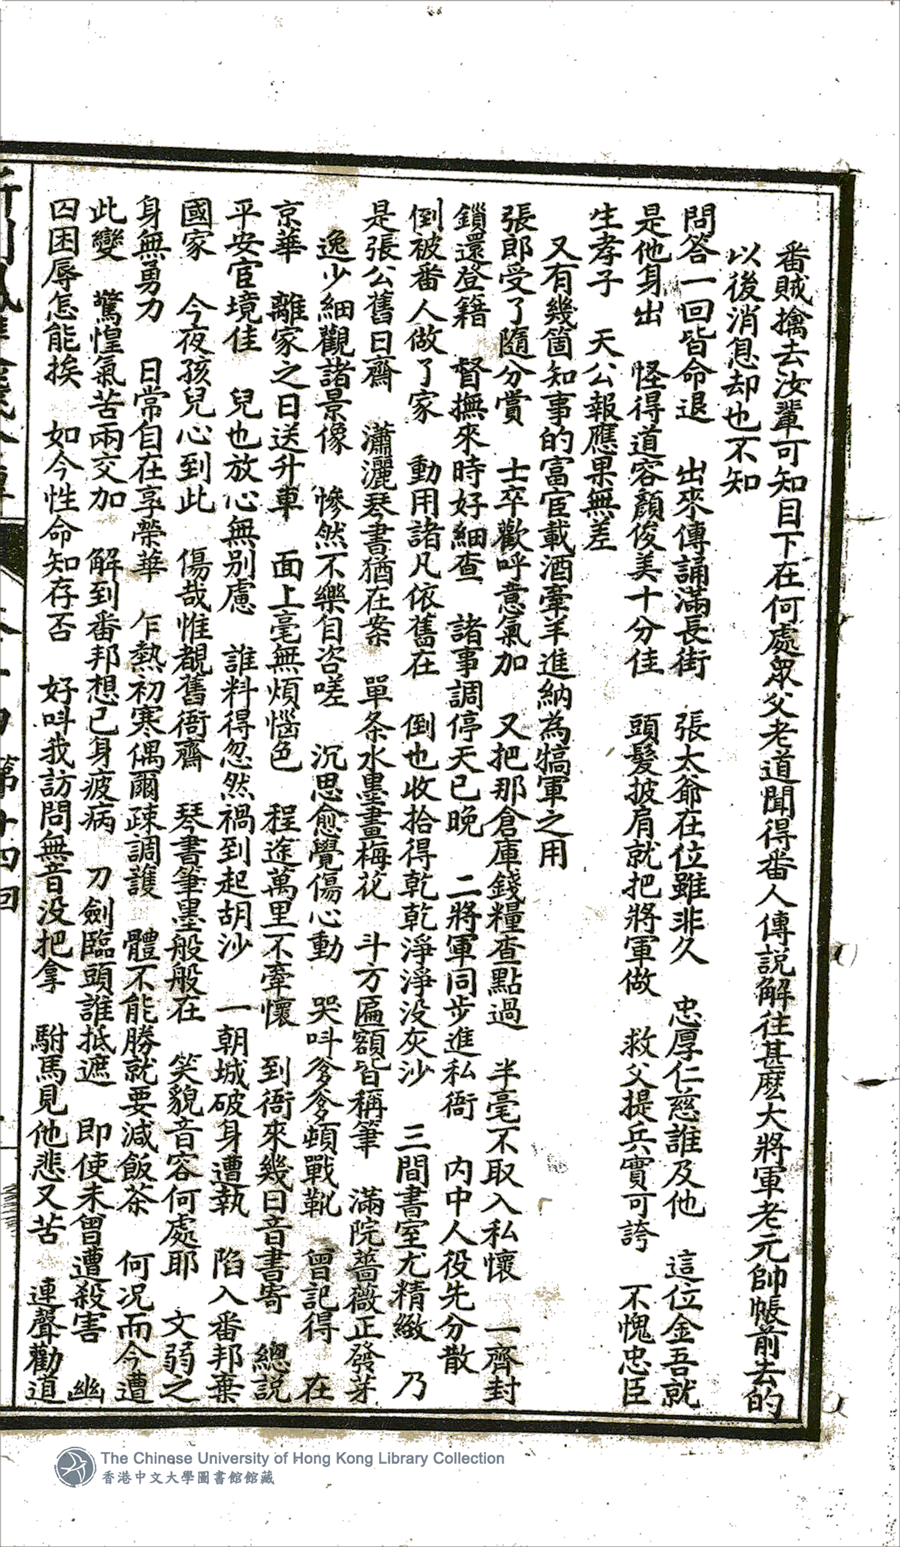 番賊擒去汝輩可知目下在何處眾父老道聞得番人傳説解往甚麽大將軍老元帥帳前去的
以後消息却也不知
問答一回皆命退　出來傳誦滿長街　張太爺在位雖非久　忠厚仁慈誰及他　這位金吾就
是他身出　怪得道容顏俊美十分佳　頭髮披肩就把將軍做　救父提兵實可誇　不愧忠臣
生孝子　天公報應果無差
又有幾箇知事的富宦載酒牽羊進納為犒軍之用
張郎受了隨分賞　士卒歡呼意氣加　又把那倉庫錢糧查點過　半毫不取入私懷　一齊封
鎖還登籍　督撫來時好細查　諸事調停天已晚　二將軍同步進私衙　內中人役先分散
倒被番人做了家　動用諸凡依舊在　倒也收拾得乾乾淨淨没灰沙　三間書室尤精緻　乃
是張公舊日齋　瀟灑琴書猶在案　單条水墨畫梅花　斗方匾額皆稱筆　滿院薔薇正發芽
逸少細觀諸景像　慘然不樂自咨嗟　沉思愈覺傷心動　哭呌爹爹頓戰靴　曾記得　在
京華　離家之日送升車　面上毫無煩惱色　程途萬里不牽懷　到衙來幾日音書寄　總説
平安宦境佳　兒也放心無別慮　誰料得忽然禍到起胡沙　一朝城破身遭執　陷入番邦棄
國家　今夜孩兒心到此　傷哉惟覩舊衙齋　琴書筆墨般般在　笑貌音容何處耶　文弱之
身無勇力　日常自在享榮華　乍熱初寒偶爾疎調護　體不能勝就要減飯茶　何况而今遭
此變　驚惶氣苦兩交加　解到番邦想已身疲病　刀劍臨頭誰抵遮　即使未曾遭殺害　幽
囚困辱怎能挨　如今性命知存否　好呌我訪問無音没把拿　駙馬見他悲又苦　連聲勸道
第十四回
The Chinese University of Hong Kong Library Collection
香港中文大學圖書館館藏